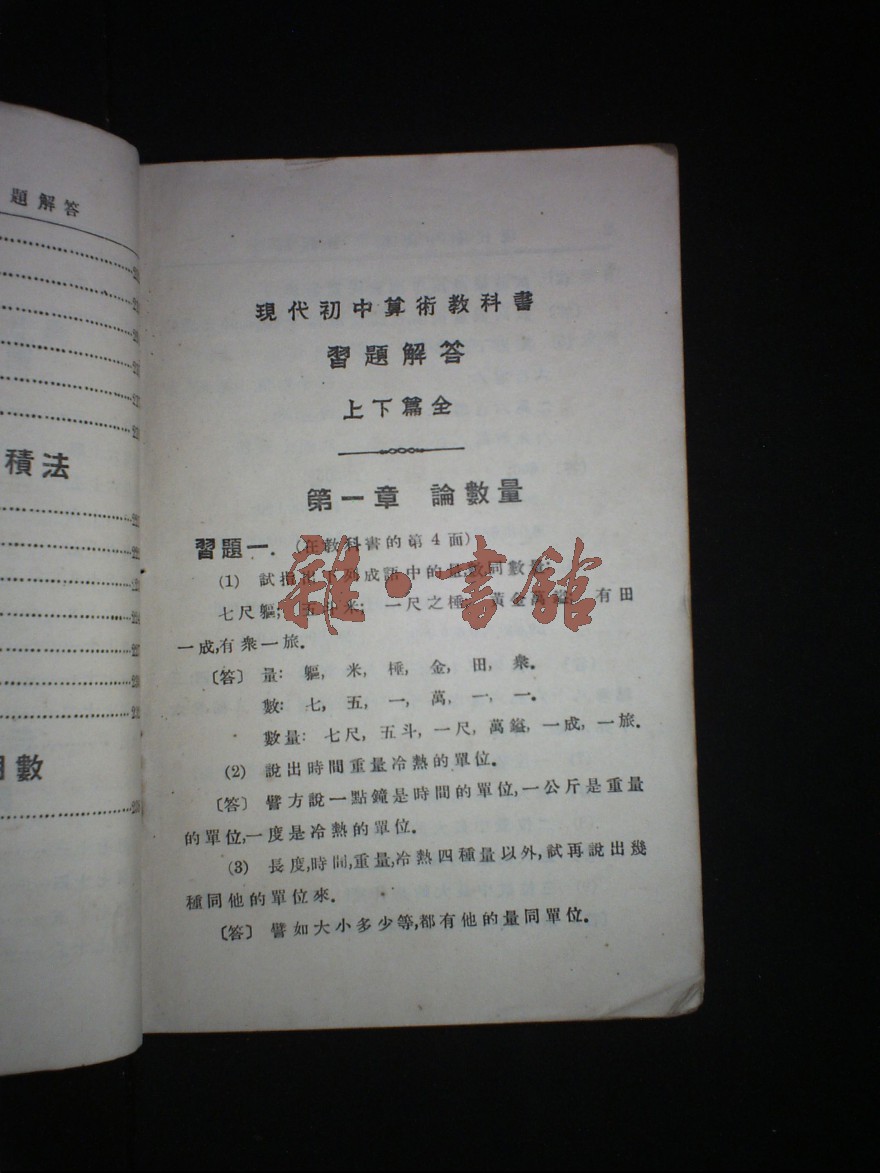 題解答
積法
數
現代初中算術教科書
習題解答
上下篇全
第一章 論數量
習題一．(在教科書的第4面)
(1) 試指出下列成語中的量數同數量:
七尺軀; 五斗米; 一尺之棰, 黃金萬鎰, 有田
一成,有衆一旅.
〔答〕 量: 軀, 米, 棰, 金, 田, 衆.
數: 七, 五, 一, 萬, 一, 一.
數量: 七尺, 五斗, 一尺, 萬鎰, 一成, 一旅.
(2) 說出時間重量冷熱的單位.
〔答〕 譬方說一點鐘是時間的單位,一公斤是重量
的單位,一度是冷熱的單位.
(3) 長度,時間,重量,冷熱四種量以外,試再說出幾
種同他的單位來.
〔答〕 譬如大小多少等,都有他的量同單位.
雜·書館